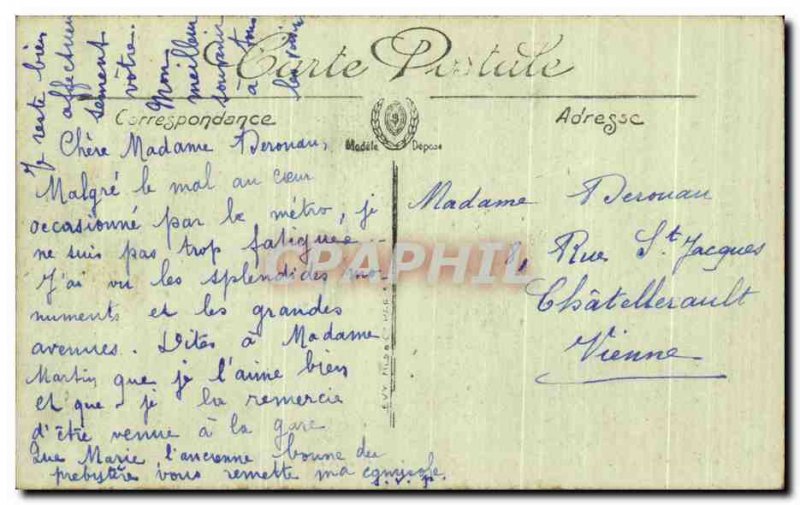 Carte Postale
Correspondance
Modèle Déposé
Adresse
Chère Madame Derouau,
Malgré le mal au cœur
occasionné par le métro, je
ne suis pas trop fatiguée.
J'ai vu les splendides mo-
numents et les grandes
avenues. Dites à Madame
Martin que je l'aime bien
et que je la remercie
d'être venue à la gare
Que Marie l'ancienne bonne du
presbytère vous remette ma
s. v. p.
Je reste bien
affectueu
sement
vôtre.
Mon
meilleur
souvenir
à tous
Madame Derouau
8, Rue St Jacques
Châtellerault
Vienne
CPRAPHIL